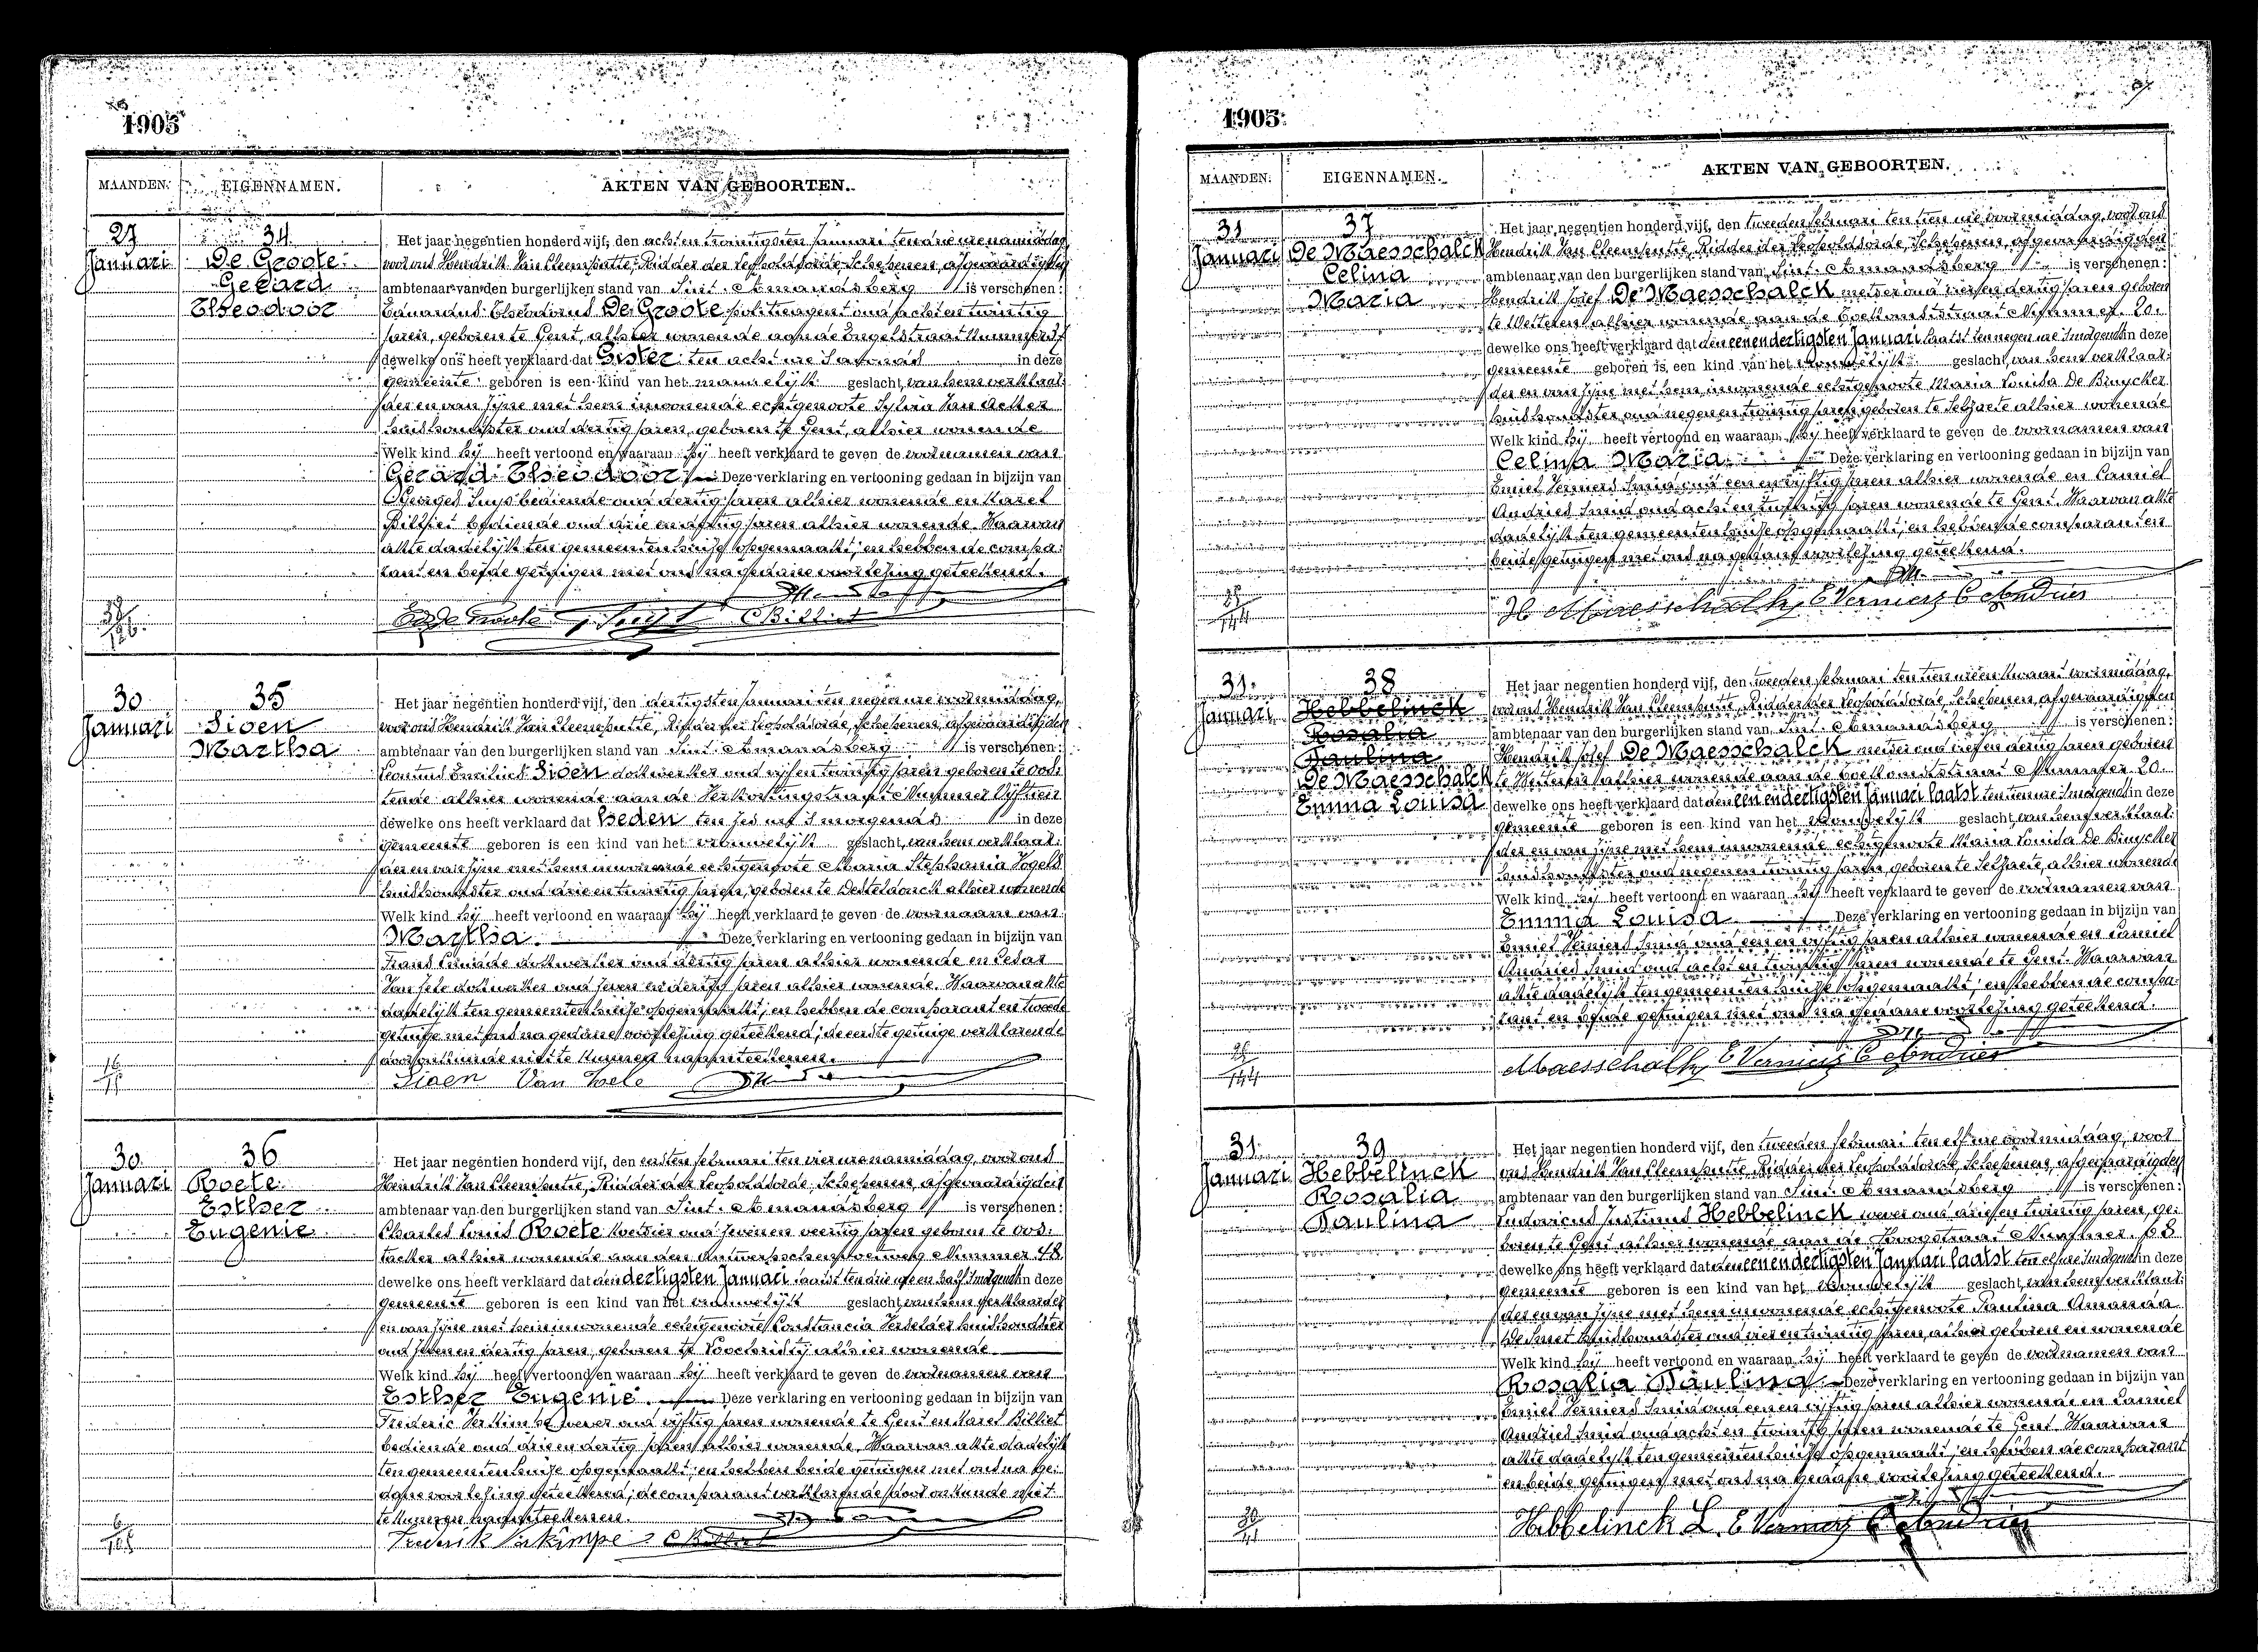 1905
MAANDEN. EIGENNAMEN. AKTEN VAN GEBOORTEN.
27
Januari
34
De Groote
Gerard
Theodoor
Het jaar negentien honderd vijf, den acht en twintigsten Januari ten drie ure namiddag
voor ons Hendrik Van Cleemputte, Ridder der Leopoldsorde, Schepenen, afgevaardigden
ambtenaar van den burgerlijken stand van Sint-Amandsberg is verschenen:
Eduardus Theodorus De Groote politieagent oud acht en twintig
jaren, geboren te Gent, alhier wonende aan de Engelstraat Nummer 37
dewelke ons heeft verklaard dat Gister ten acht ure 's avonds in deze
gemeente geboren is een kind van het mannelijk geslacht, van hem verklaar-
der en van zijne met hem inwonende echtgenoote Sylvia Van Acker
huishoudster oud dertig jaren, geboren te Gent, alhier wonende
Welk kind hij heeft vertoond en waaraan hij heeft verklaard te geven de voornamen van
Gerard Theodoor Deze verklaring en vertooning gedaan in bijzijn van
Georges Suys bediende oud dertig jaren alhier wonende en Karel
Billiet bediende oud drie en dertig jaren alhier wonende. Waarvan
akte dadelijk ten gemeentenhuize opgemaakt, en hebben de compa-
rant en beide getuigen met ons na gedane voorlezing geteekend.
Ed De Groote G. Suys C Billiet
30
Januari
35
Sioen
Martha
Het jaar negentien honderd vijf, den dertigsten Januari ten negen ure voormiddag,
voor ons Hendrik Van Cleemputte, Ridder der Leopoldsorde, Schepenen, afgevaardigden
ambtenaar van den burgerlijken stand van Sint-Amandsberg is verschenen:
Sioen dokwerker oud vijf en twintig jaren geboren te Oos-
tende alhier wonende aan de Verkortingstraat Nummer Vijftien
dewelke ons heeft verklaard dat heden ten zes ure 's morgends in deze
gemeente geboren is een kind van het vrouwelijk geslacht, van hem verklaar-
der en van zijne met hem inwonende echtgenoote Maria Stephania Vogels
huishoudster oud drie en twintig jaren, geboren te Desteldonck alhier wonende
Welk kind hij heeft vertoond en waaraan hij heeft verklaard te geven de voornaam van
Martha. Deze verklaring en vertooning gedaan in bijzijn van
Frans dokwerker oud dertig jaren alhier wonende en Cesar
Van Hele dokwerker oud zeven en dertig jaren alhier wonende. Waarvan akte
dadelijk ten gemeentenhuize opgemaakt, en hebben de comparant en tweede
getuige met ons na gedane voorlezing geteekend; de eerste getuige verklarende
door onkunde niet te kunnen naamteekenen.
Sioen Van Hele
30
Januari
36
Roete
Esther
Eugenie
Het jaar negentien honderd vijf, den eersten februari ten vier ure namiddag, voor ons
Hendrik Van Cleemputte, Ridder der Leopoldsorde, Schepenen, afgevaardigden
ambtenaar van den burgerlijken stand van Sint-Amandsberg is verschenen:
Charles Louis Roete koetsier oud zeven en veertig jaren geboren te Oos-
tacker alhier wonende aan den Antwerpschensteenweg Nummer 48
dewelke ons heeft verklaard dat den dertigsten Januari laatst ten drie ure en half 's morgends in deze
gemeente geboren is een kind van het vrouwelijk geslacht, van hem verklaarder
en van zijne met hem inwonende echtgenoote Constancia Verhelder huishoudster
oud zeven en dertig jaren, geboren te Loochristij alhier wonende
Welk kind hij heeft vertoond en waaraan hij heeft verklaard te geven de voornamen van
Esther Eugenie. Deze verklaring en vertooning gedaan in bijzijn van
Frederic Verkimpe wever oud vijftig jaren wonende te Gent en Karel Billiet
bediende oud drie en dertig jaren alhier wonende. Waarvan akte dadelijk
ten gemeentenhuize opgemaakt, en hebben beide getuigen met ons na ge-
dane voorlezing geteekend; de comparant verklarende door onkunde niet
te kunnen naamteekenen.
Frederik Verkimpe C Billiet
1905
MAANDEN. EIGENNAMEN. AKTEN VAN GEBOORTEN.
31
Januari
37
De Maesschalck
Celina
Maria
Het jaar negentien honderd vijf, den tweeden februari ten tien ure voormiddag, voor ons
Hendrik Van Cleemputte, Ridder der Leopoldsorde, Schepenen, afgevaardigden
ambtenaar van den burgerlijken stand van Sint-Amandsberg is verschenen:
Hendrik Josef De Maesschalck metser oud vier en dertig jaren geboren
te Wetteren alhier wonende aan de Toekomststraat Nummer 20.
dewelke ons heeft verklaard dat den een en dertigsten Januari laatst ten negen ure 's morgends in deze
gemeente geboren is een kind van het vrouwelijk geslacht, van hem verklaar-
der en van zijne met hem inwonende echtgenoote Maria Louisa De Bruycker
huishoudster oud negen en twintig jaren geboren te Selzaete alhier wonende
Welk kind hij heeft vertoond en waaraan hij heeft verklaard te geven de voornamen van
Celina Maria Deze verklaring en vertooning gedaan in bijzijn van
Emiel Verniers Smid oud een en vijftig jaren alhier wonende en Camiel
Andries Smid oud acht en twintig jaren wonende te Gent. Waarvan akte
dadelijk ten gemeentenhuize opgemaakt, en hebben de comparant en
beide getuigen met ons na gedane voorlezing geteekend.
H Maesschalk E Verniers C Andries
31
Januari
38
Hebbelinck
Rosalia
Paulina
De Maesschalck
Emma Louisa
Het jaar negentien honderd vijf, den tweeden februari ten tien ure en kwart voormiddag,
voor ons Hendrik Van Cleemputte, Ridder der Leopoldsorde, Schepenen, afgevaardigden
ambtenaar van den burgerlijken stand van Sint-Amandsberg is verschenen:
Hendrik Josef De Maesschalck metser oud vier en dertig jaren geboren
te Wetteren alhier wonende aan de Toekomststraat Nummer 20.
dewelke ons heeft verklaard dat den een en dertigsten Januari laatst ten tien ure 's morgends in deze
gemeente geboren is een kind van het vrouwelijk geslacht, van hem verklaar-
der en van zijne met hem inwonende echtgenoote Maria Louisa De Bruycker
huishoudster oud negen en twintig jaren, geboren te Selzaete, alhier wonende
Welk kind hij heeft vertoond en waaraan hij heeft verklaard te geven de voornamen van
Emma Louisa Deze verklaring en vertooning gedaan in bijzijn van
Emiel Verniers Smid oud een en vijftig jaren alhier wonende en Camiel
Andries Smid oud acht en twintig jaren wonende te Gent. Waarvan
akte dadelijk ten gemeentenhuize opgemaakt, en hebben de compa-
rant en beide getuigen met ons na gedane voorlezing geteekend.
Maesschalk E Verniers C Andries
31
Januari
39
Hebbelinck
Rosalia
Paulina
Het jaar negentien honderd vijf, den tweeden februari ten elf ure voormiddag, voor
ons Hendrik Van Cleemputte, Ridder der Leopoldsorde, Schepenen, afgevaardigden
ambtenaar van den burgerlijken stand van Sint-Amandsberg is verschenen:
Ludovicus Justinus Hebbelinck wever oud drie en twintig jaren, ge-
boren te Gent alhier wonende aan de Hoogstraat Nummer 68
dewelke ons heeft verklaard dat den een en dertigsten Januari laatst ten elf ure 's morgends in deze
gemeente geboren is een kind van het vrouwelijk geslacht, van hem verklaar-
der en van zijne met hem inwonende echtgenoote Paulina Amanda
De Smet huishoudster oud vier en twintig jaren, alhier geboren en wonende
Welk kind hij heeft vertoond en waaraan hij heeft verklaard te geven de voornamen van
Rosalia Paulina. Deze verklaring en vertooning gedaan in bijzijn van
Emiel Verniers Smid oud een en vijftig jaren alhier wonende en Camiel
Andries Smid oud acht en twintig jaren wonende te Gent. Waarvan
akte dadelijk ten gemeentenhuize opgemaakt, en hebben de comparant
en beide getuigen met ons na gedane voorlezing geteekend.
Hebbelinck L. E Verniers C Andries